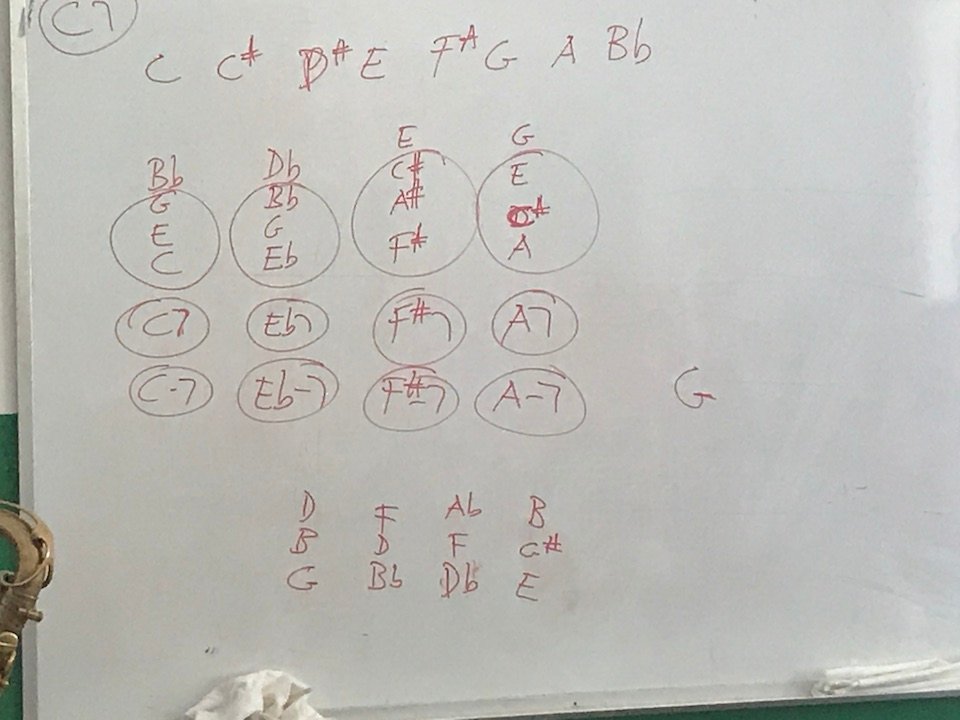 C7
C C# D# E F# G A Bb
E G
Bb Db C# E
G Bb A# C#
E G F# A
C Eb
C7 Eb7 F#7 A7
C-7 Eb-7 F#-7 A-7 G
D F Ab B
B D F G#
G Bb Db E